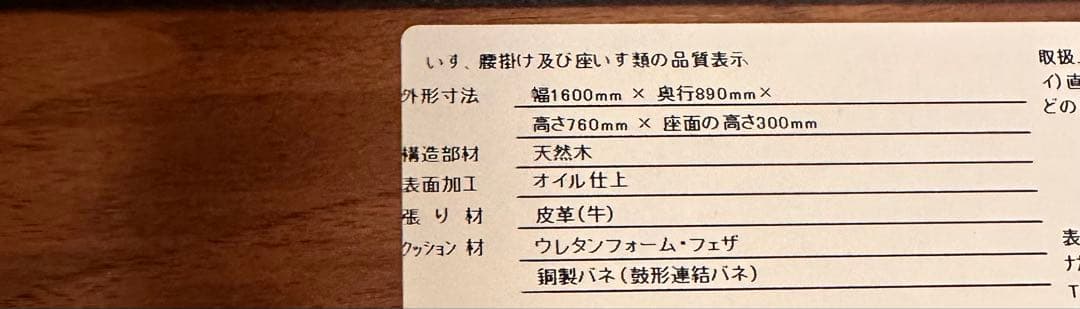 いす、腰掛け及び座いす類の品質表示
外形寸法 幅1600mm × 奥行890mm×
高さ760mm × 座面の高さ300mm
構造部材 天然木
表面加工 オイル仕上
張り材 皮革(牛)
クッション材 ウレタンフォーム・フェザ
鋼製バネ(鼓形連結バネ)
取扱
イ)直
どの
表
ナ
T